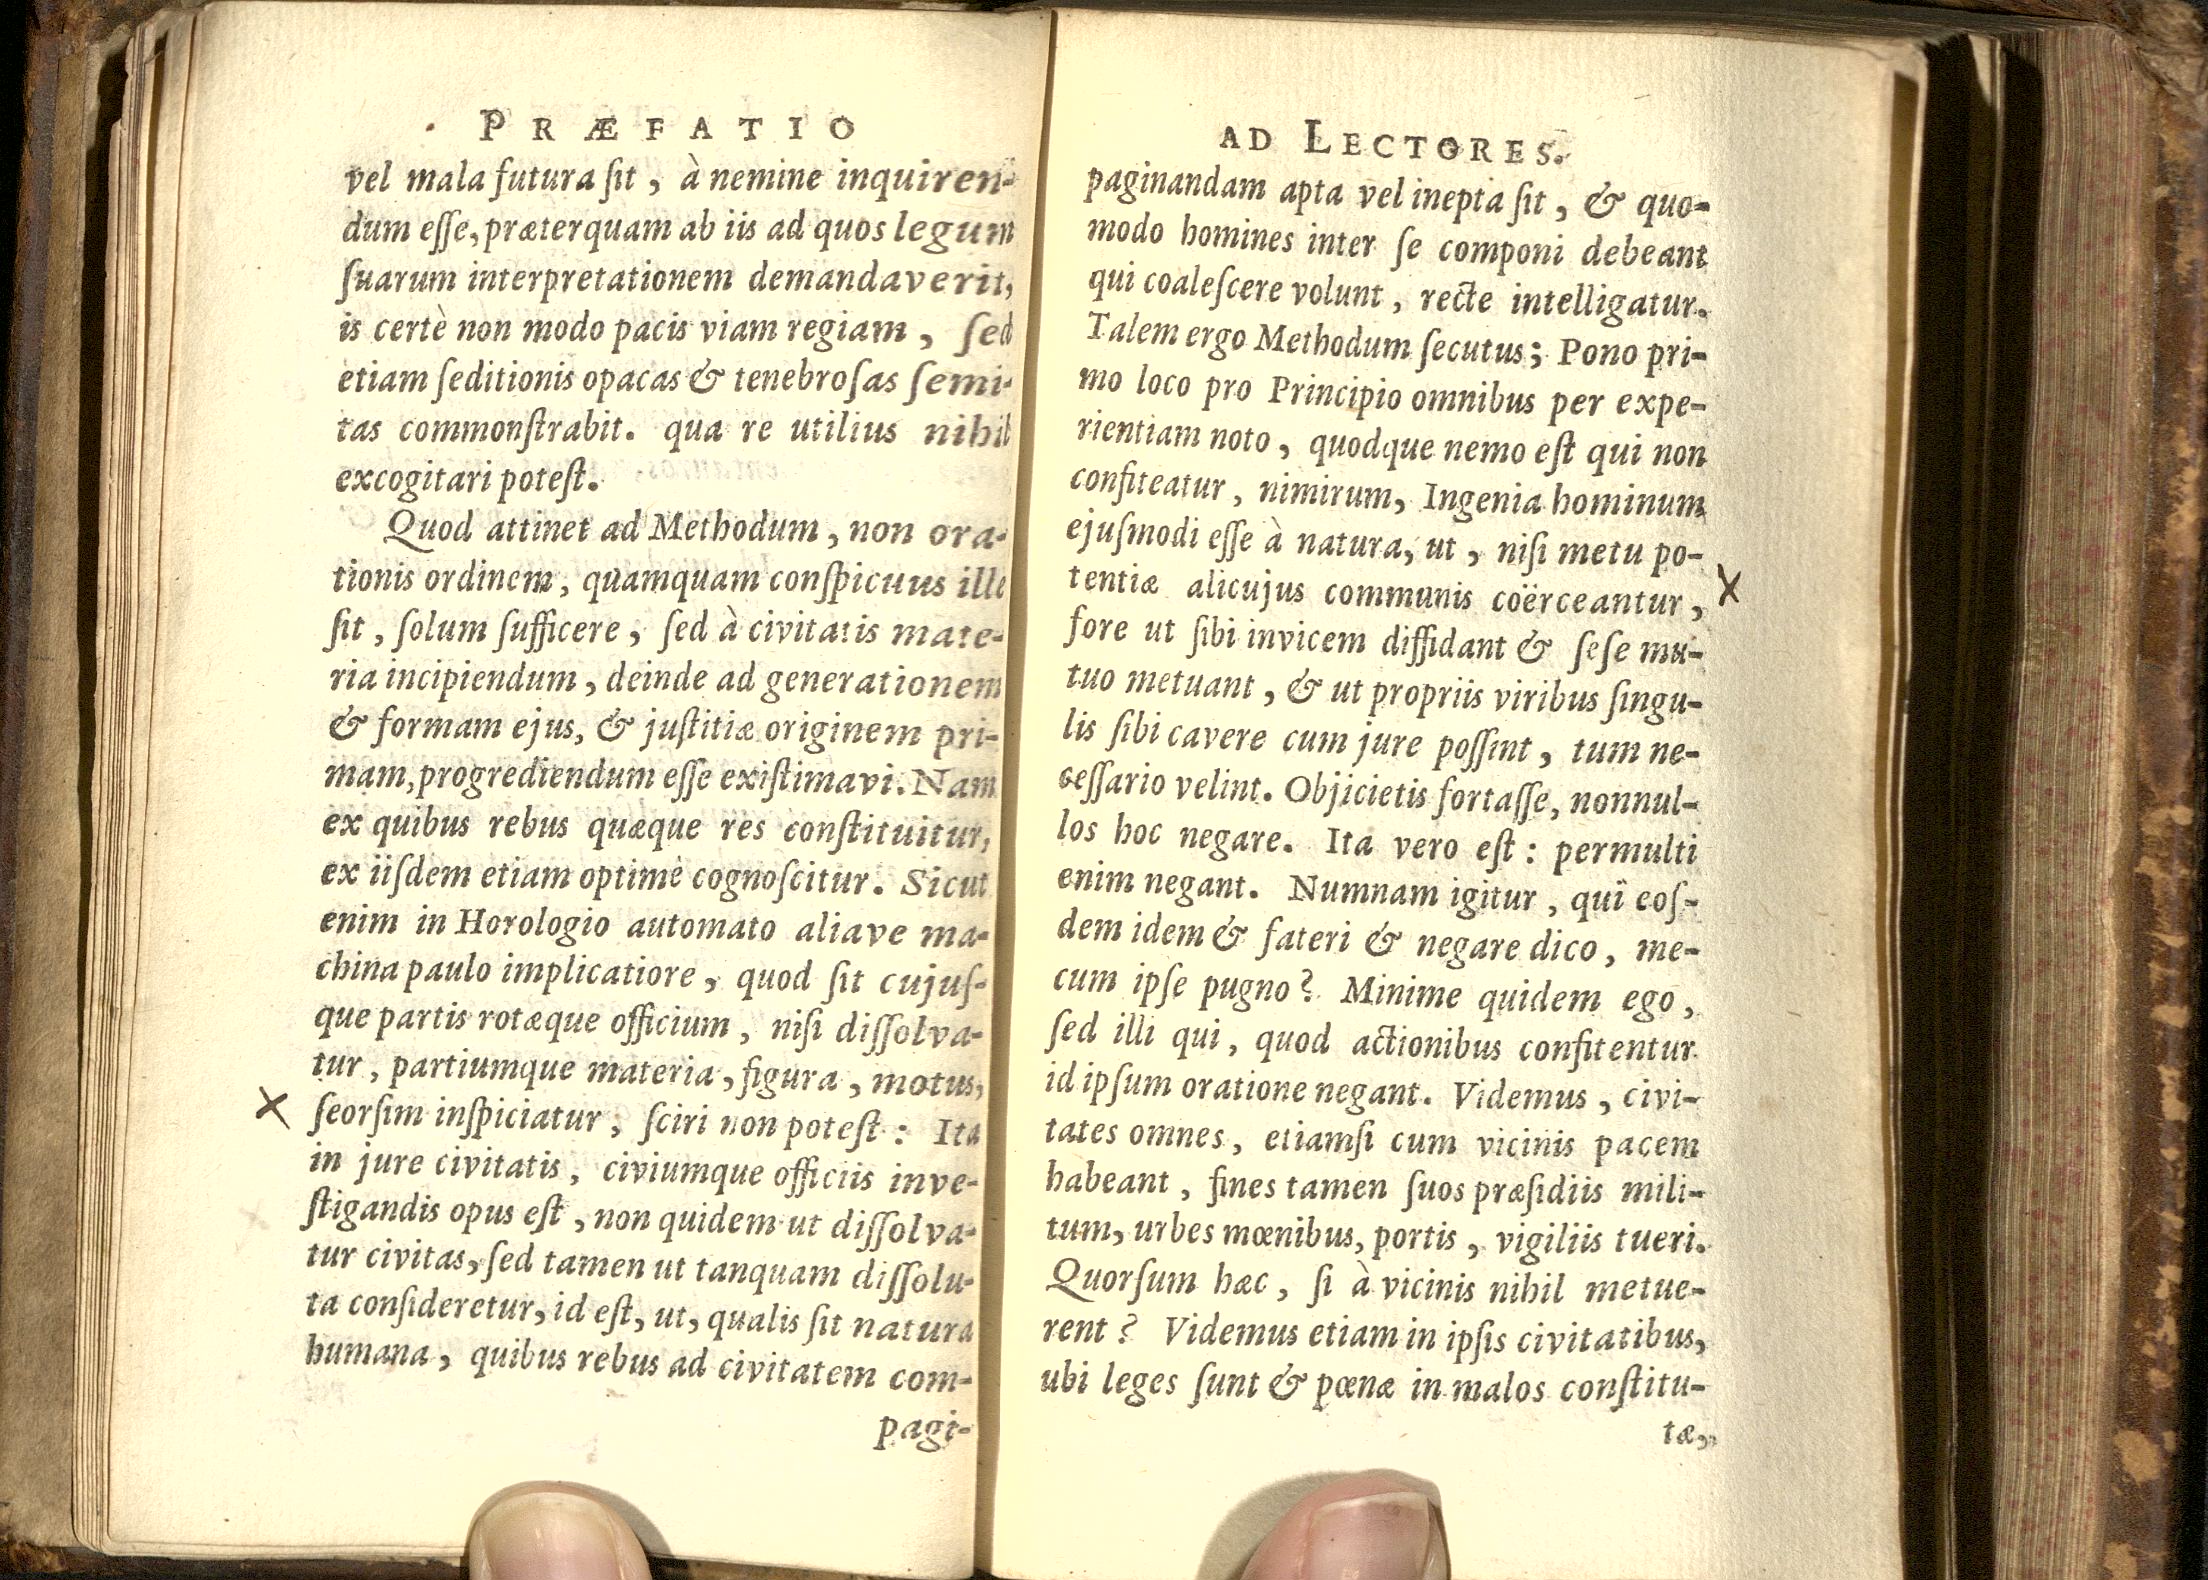 PRÆFATIO
vel mala futura ſit, à nemine inquiren-
dum eſſe, præterquam ab iis ad quos legum
ſuarum interpretationem demandaverit,
is certè non modo pacis viam regiam, ſed
etiam ſeditionis opacas & tenebroſas ſemi-
tas commonſtrabit. qua re utilius nihil
excogitari poteſt.
Quod attinet ad Methodum, non ora-
tionis ordinem, quamquam conſpicuus ille
ſit, ſolum ſufficere, ſed à civitatis mate-
ria incipiendum, deinde ad generationem
& formam ejus, & juſtitiæ originem pri-
mam, progrediendum eſſe exiſtimavi. Nam
ex quibus rebus quæque res conſtituitur,
ex iiſdem etiam optimè cognoſcitur. Sicut
enim in Horologio automato aliave ma-
china paulo implicatiore, quod ſit cujuſ-
que partis rotæque officium, niſi diſſolva-
tur, partiumque materia, figura, motus,
X ſeorſim inſpiciatur, ſciri non poteſt: Ita
in jure civitatis, civiumque officiis inve-
ſtigandis opus eſt, non quidem ut diſſolva-
tur civitas, ſed tamen ut tanquam diſſolu-
ta conſideretur, id eſt, ut, qualis ſit natura
humana, quibus rebus ad civitatem com-
pagi-
AD LECTORES.
paginandam apta vel inepta ſit, & quo-
modo homines inter ſe componi debeant
qui coaleſcere volunt, recte intelligatur.
Talem ergo Methodum ſecutus; Pono pri-
mo loco pro Principio omnibus per expe-
rientiam noto, quodque nemo eſt qui non
confiteatur, nimirum, Ingenia hominum
ejuſmodi eſſe à natura, ut, niſi metu po-
tentiæ alicujus communis coërceantur, X
fore ut ſibi invicem diffidant & ſeſe mu-
tuo metuant, & ut propriis viribus ſingu-
lis ſibi cavere cum jure poſſint, tum ne-
ceſſario velint. Objicietis fortaſſe, nonnul-
los hoc negare. Ita vero eſt: permulti
enim negant. Numnam igitur, qui eoſ-
dem idem & fateri & negare dico, me-
cum ipſe pugno? Minime quidem ego,
ſed illi qui, quod actionibus confitentur
id ipſum oratione negant. Videmus, civi-
tates omnes, etiamſi cum vicinis pacem
habeant, fines tamen ſuos præſidiis mili-
tum, urbes mœnibus, portis, vigiliis tueri.
Quorſum hæc, ſi à vicinis nihil metue-
rent? Videmus etiam in ipſis civitatibus,
ubi leges ſunt & pœnæ in malos conſtitu-
tæ,